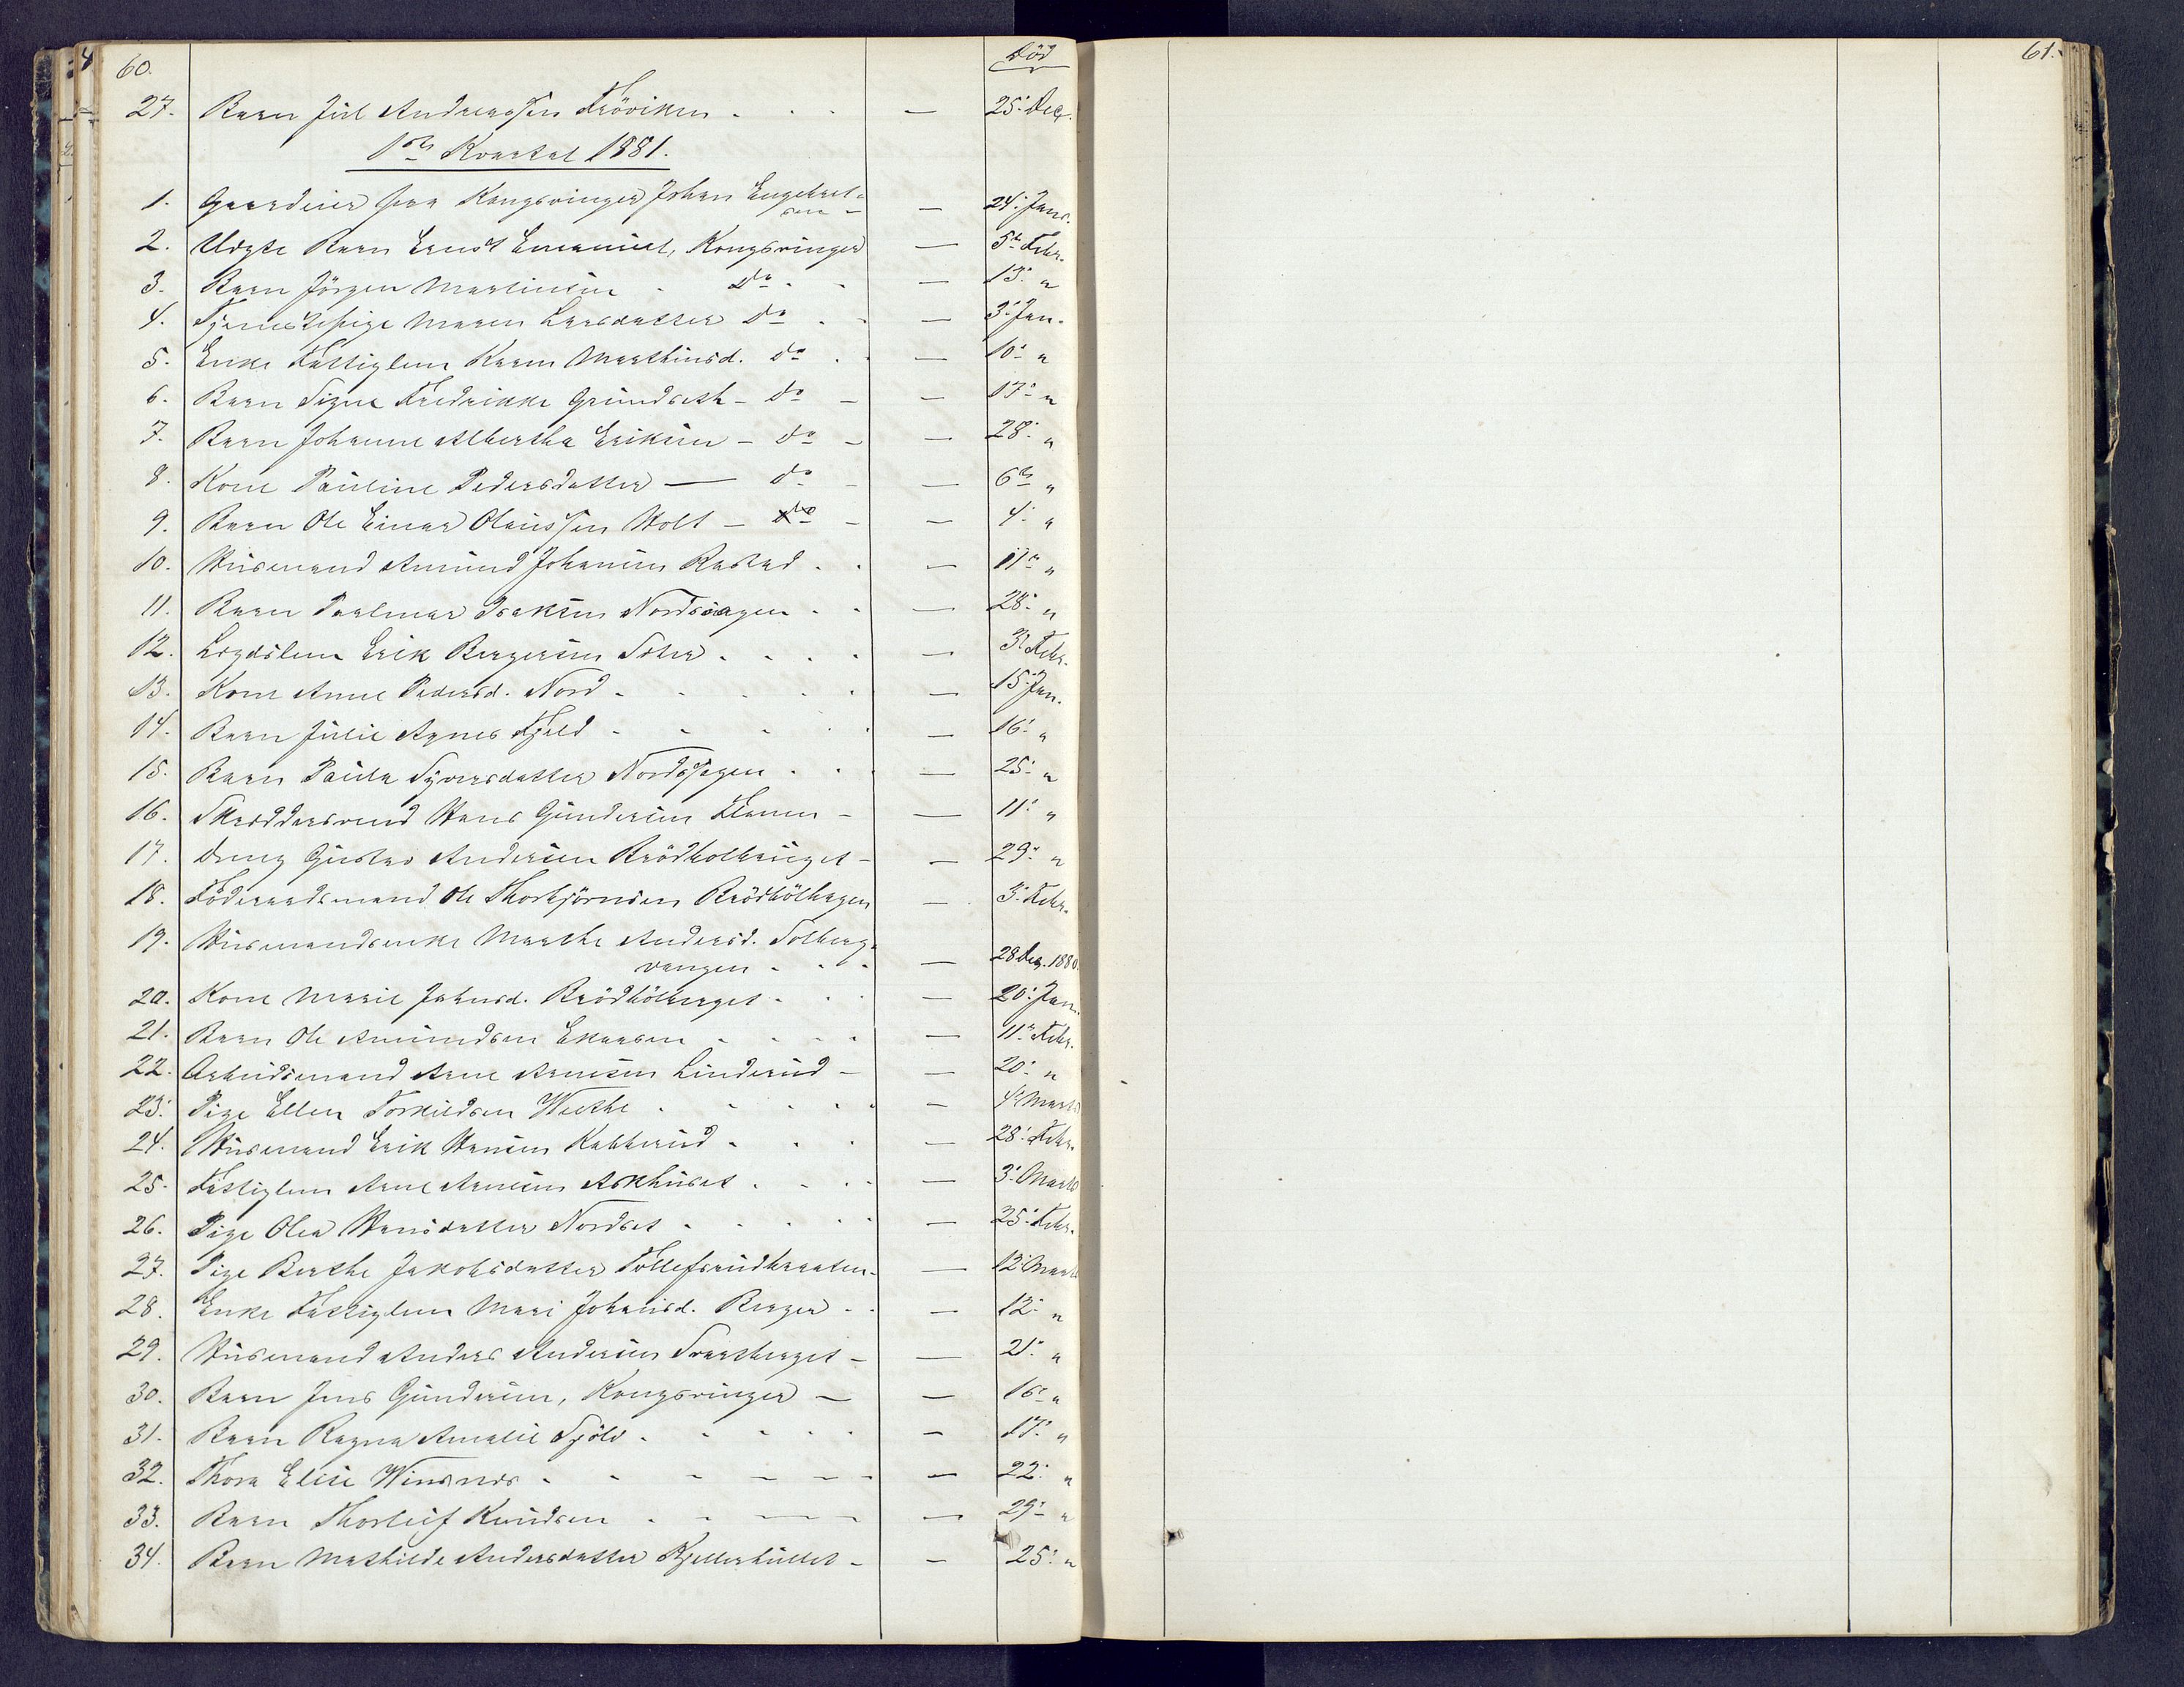 60. Död
27. Barn Juel Andreassen Fröviken — 25. Dec.
1ste Kvartal 1881.
1. Gaardeier fra Kongsvinger Johan Engebret-
sen — 24. Janr.
2. Udøbt Barn Ernst Emanuel, Kongsvinger — 5te Febr.
3. Barn Jörgen Martinsen do — 13. "
4. Tjenestepige Maren Larsdatter do — 3. Jan.
5. Enke Fattiglem Karen Marthinsd. do — 10. "
6. Barn Signe Fredrikke Grundseth - do — 17. "
7. Barn Johanne Albertha Eriksen - do — 28. "
8. Kone Pauline Pedersdatter — do — 6te "
9. Barn Ole Einar Olaussen Holt — 4. "
10. Husmand Amund Johansen Rastad — 11. "
11. Barn Isaksen Nordhagen — 28. "
12. Lægdslem Erik Bergersen — 3. Febr.
13. Kone Anne Pedersd. Nord — 15. Jan.
14. Barn Julie Agnes Fjeld — 16. "
15. Barn Paula Syversdatter — 25. "
16. Skreddersvend Hans Gundersen — 11. "
17. Dreng Gustav Andersen Brödholhauget — 29. "
18. Föderaadsmand Ole Thorbjörnsen Brödbölhagen — 3. Febr.
19. Husmandsenke Marthe Andersd. Solberg-
vangen — 28 Dec. 1880.
20. Kone Marie Jahnsd. Brödbölberget — 20. Jan.
21. Barn Ole Amundsen Ekaasen — 11. Febr.
22. Arbeidsmand Arne Arnesen Linderud — 20. "
23. Pige Ellen Torkildsen — 4. Marts
24. Husmand Erik Hansen Kabberud — 28. Febr.
25. Fattiglem Arne Arnesen Askhuset — 3. Marts
26. Pige Olea Hansdatter Nordset — 25. Febr.
27. Pige Berthe Jakobsdatter Tollefsrudbraaten — 12. Marts
28. Enke Fattiglem Mari Johansd. Berger — 12. "
29. Husmand Anders Andersen Svartberget — 21. "
30. Barn Jens Gundersen, Kongsvinger — 16. "
31. Barn Ragna Amalie Sjöli — 17. "
32. Thora Elise — 22. "
33. Barn Thorleif Knudsen — 29. "
34. Barn Mathilde Andersdatter Kjellerhullet — 25. "
61.